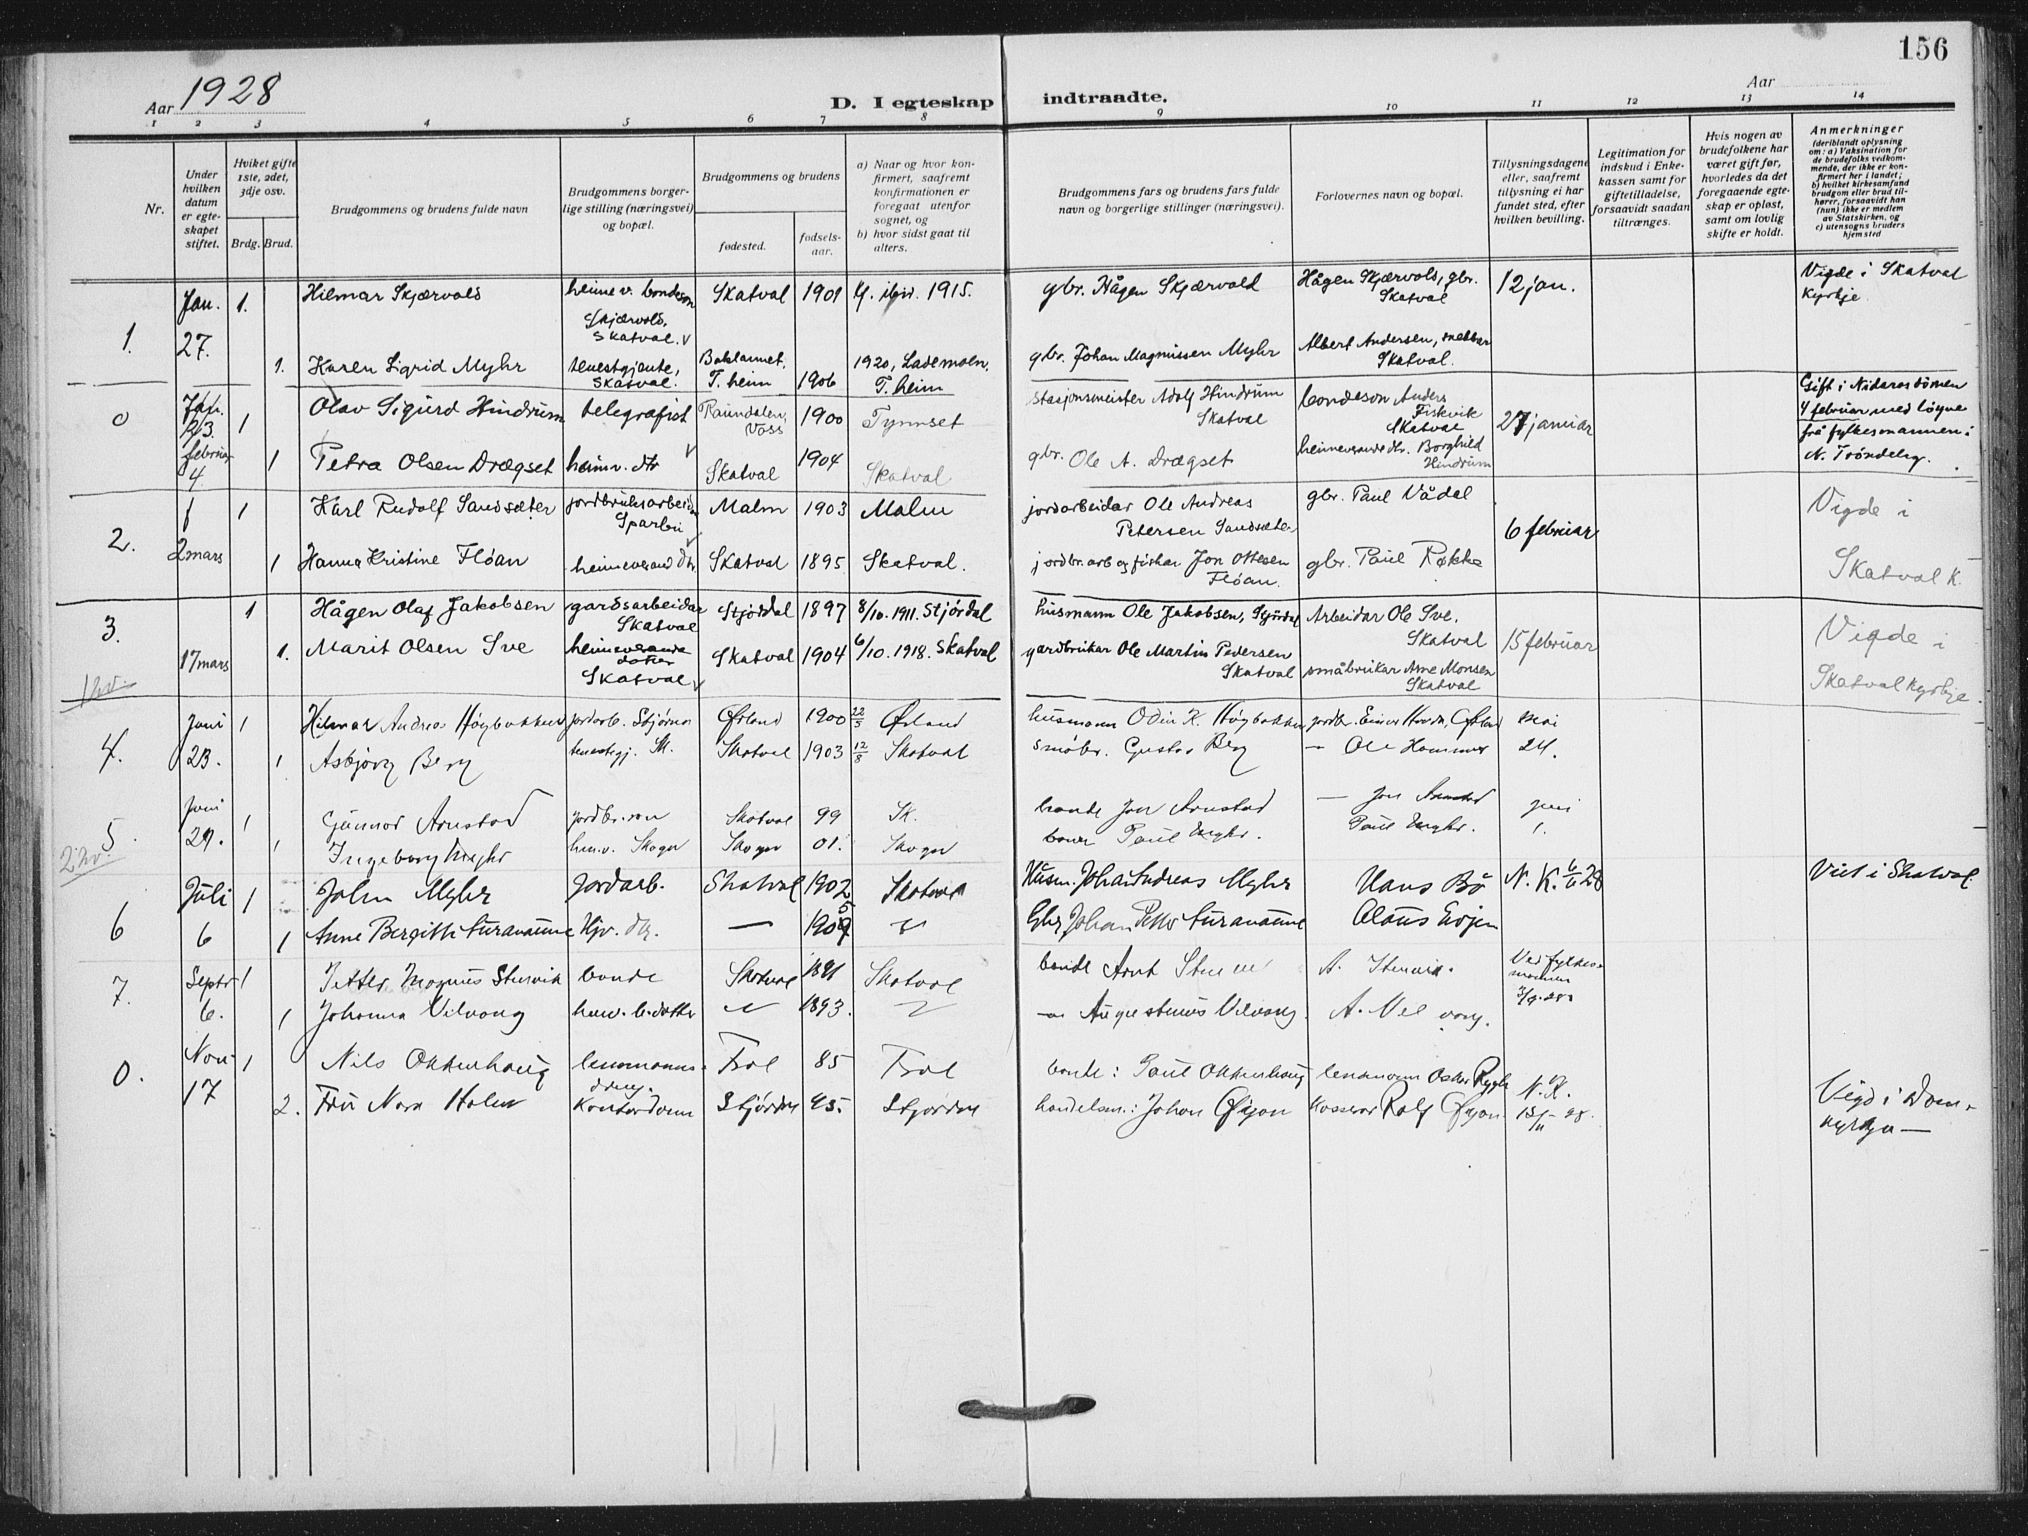 156
Aar 1928
D. I egteskap indtraadte.
Aar
1 2 3 4 5 6 7 8 9 10 11 12 13 14
Nr.
Under hvilken datum er egteskapet stiftet.
Hviket gifte 1ste, 2det, 3dje osv.
Brdg. Brud.
Brudgommens og brudens fulde navn
Brudgommens borgerlige stilling (næringsvei) og bopæl.
Brudgommens og brudens
fødested.
fødselsaar.
a) Naar og hvor konfirmert, saafremt konfirmationen er foregaat utenfor sognet, og
b) hvor sidst gaat til alters.
Brudgommens fars og brudens fars fulde navn og borgerlige stillinger (næringsvei).
Forlovernes navn og bopæl.
Tillysningsdagene eller, saafremt tillysning ei har fundet sted, efter hvilken bevilling.
Legitimation for indskud i Enkekassen samt for giftetilladelse, forsaavidt saadan tiltrænges.
Hvis nogen av brudefolkene har været gift før, hvorledes da det foregaaende egteskap er opløst, samt om lovlig skifte er holdt.
Anmerkninger (deriblandt oplysning om: a) Vaksination for de brudefolks vedkommende, der ikke er konfirmert her i landet; b) hvilket kirkesamfund brudgom eller brud tilhører, forsaavidt han (hun) ikke er medlem av Statskirken, og c) utensogns bruders hjemsted
1. Jan. 27. 1. Hilmar Skjærvold heime v. bondeson Skjærvold, Skatval. Skatval 1901 1915. gbr. Hågen Skjærvold Hågen Skjærvold, gbr. Skatval 12 jan. Vigde i Skatval Kyrkje.
1. Karen Sigrid Myhr tenestgjente, Skatval. Baklannet, T.heim 1906 1920, Lademoen, T.heim gbr. Johan Magnussen Myhr Albert Andersen, snekkar Skatval.
0 1 Olav Sigurd Hindrum telegrafist Raundalen, Voss 1900 Tynnset stasjonsmeister Adolf Hindrum Skatval bondeson Anders Fiskvik Skatval 27 januar Gift i Nidarosdomen 4 februar med løyve frå fylkesmannen i N. Trøndelag.
februar 4. 1 Petra Olsen Drægset heimv. dtr Skatval 1904 Skatval gbr. Ole A. Drægset heimeverande dtr. Borghild Hindrum
2. 2 mars 1 Karl Rudolf Sandsæter jordbruksarbeidar Sparbu Malm 1903 Malm jordarbeidar Ole Andreas Petersen Sandsæter gbr. Paul Vådal 6 februar Vigde i Skatval K.
1 Hanna Kristine Flóan heimeverand dtr. Skatval 1895 Skatval. jordbr.arb og fiskar Jon Ottesen Flóan. gbr. Paul Røkke
3. 17 mars 1 Hågen Olaf Jakobsen gardsarbeidar Skatval Stjørdal 1897 8/10. 1911. Stjørdal husmann Ole Jakobsen, Stjørdal Arbeidar Ole Sve. Skatval 15 februar Vigde i Skatval kyrkje.
1. Marit Olsen Sve heimeverande dotter Skatval 1904 6/10. 1918. Skatval gardbrukar Ole Martin Pedersen Skatval småbrukar Arne Monsen Skatval
1 hv.
4. Juni 23. 1 Hilmar Andreas Høybakken jordarb. Stjørna Ørland 1900 22/5 Ørland husmann Odin K. Høybakken jordbr. Einar Hovde, Ørland Mai 24.
1 Asbjørg Berg tenestegj. Sk. Skatval 1903 12/8 Skatval småbr. Gustav Berg — Ole Hammer
5. Juni 29. 1 Gunnar Arnstad jordbr. son Skatval 99 Sk. bonde Jon Arnstad — Jon Arnstad juni 1.
1 Ingeborg Myhr hmv. Skogn Skogn 01. Skogn bonde Paul Myhr. Paul Myhr.
2. hv.
6 Juli 6 1 John Myhr Jordarb. Skatval 1902 Skatval Husm. Johan Andreas Myhr Hans Bø N. K. 6/6 28 Viet i Skatval.
1 Anne Bergitte Auranaune Hjv. dtr. — 1905 Gbr. Johan Petter Auranaune Olaus Evjen
7. Septr 6. 1 Petter Magnus Stenvik bonde Skatval 1891 Skatval bonde Arnt Stenvik A. Stenvik. Ved fylkesmannen 3/9-28
1 Johanna Velvang hmv. b.datter 1893. Augustinus Velvang. A. Velvang.
0. Nov 17 1 Nils Okkenhaug lensmanns Frol 85 Frol bonde: Paul Okkenhaug lensmann Oskar Rygh N. K. 13/11-28. Vigd i Domkyrkja —
2. Fru Nora Holm Kontordame Stjørdal 95. Stjørdal handelsm: Johan Øfjan Kasserar Rolf Øfjan